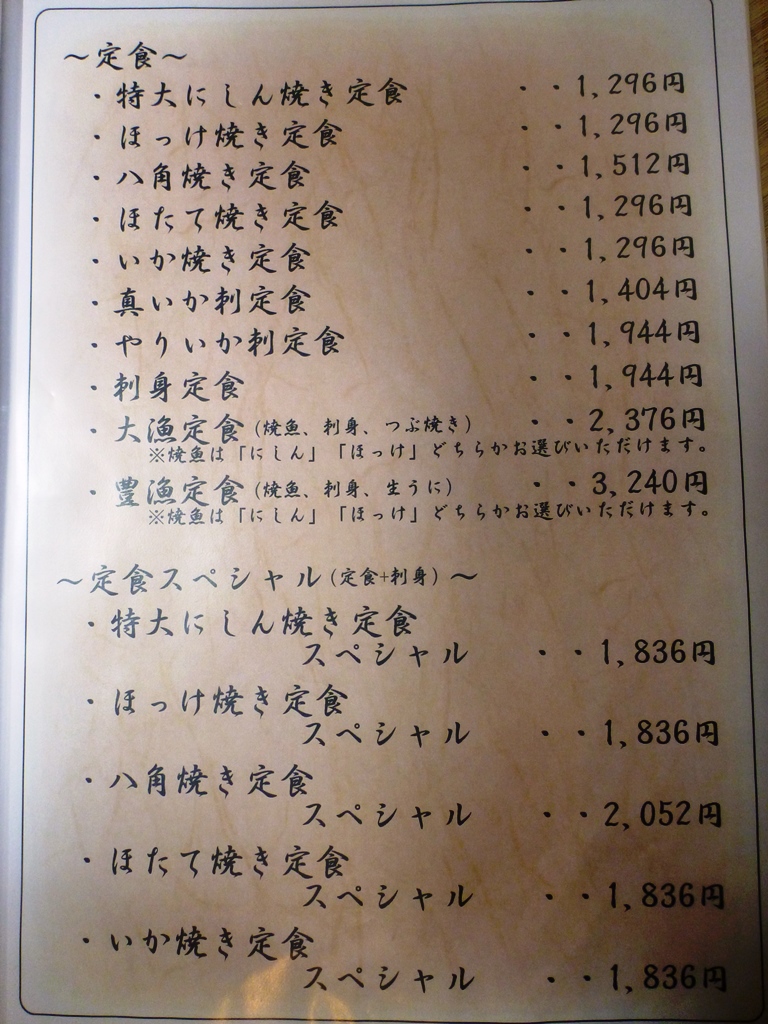 ～定食～
・特大にしん焼き定食 ・・1,296円
・ほっけ焼き定食 ・・1,296円
・八角焼き定食 ・・1,512円
・ほたて焼き定食 ・・1,296円
・いか焼き定食 ・・1,296円
・真いか刺定食 ・・1,404円
・やりいか刺定食 ・・1,944円
・刺身定食 ・・1,944円
・大漁定食(焼魚、刺身、つぶ焼き) ・・2,376円
※焼魚は「にしん」「ほっけ」どちらかお選びいただけます。
・豊漁定食(焼魚、刺身、生うに) ・・3,240円
※焼魚は「にしん」「ほっけ」どちらかお選びいただけます。
～定食スペシャル(定食+刺身)～
・特大にしん焼き定食
スペシャル ・・1,836円
・ほっけ焼き定食
スペシャル ・・1,836円
・八角焼き定食
スペシャル ・・2,052円
・ほたて焼き定食
スペシャル ・・1,836円
・いか焼き定食
スペシャル ・・1,836円